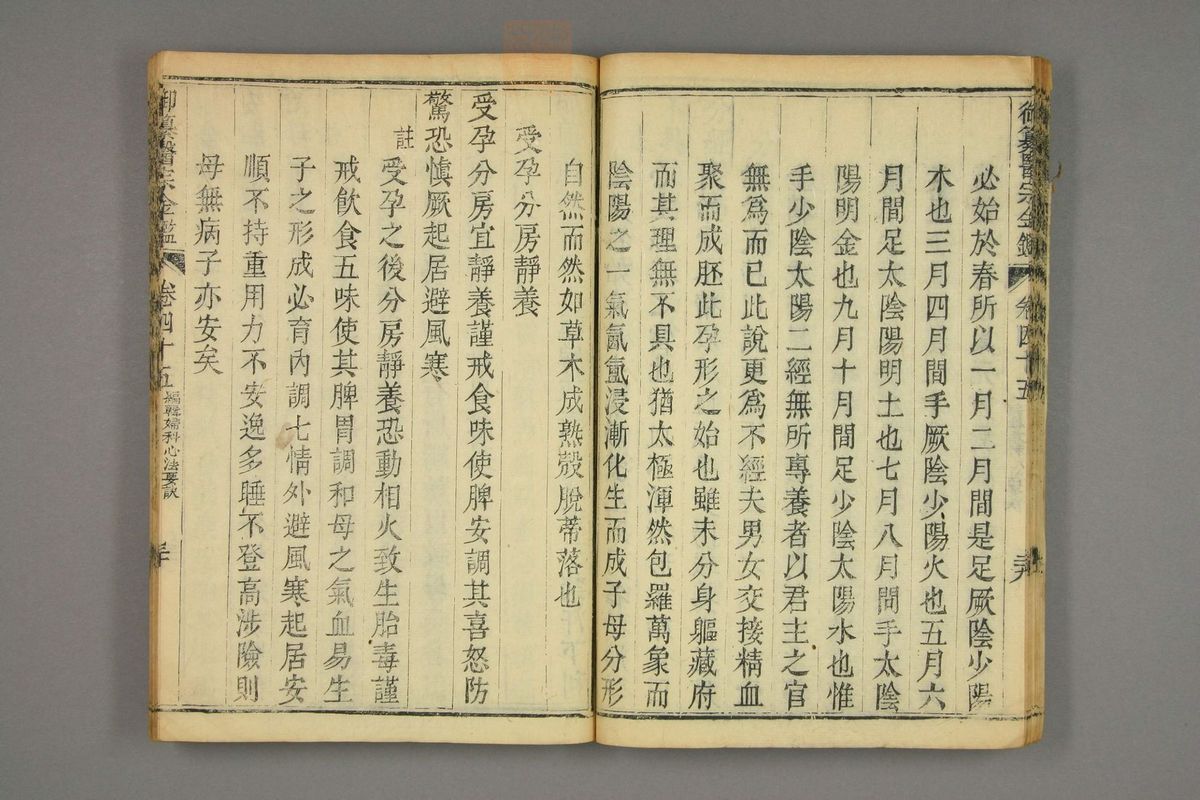 御纂醫宗金鑑
卷四十五
必始於春所以一月二月間是足厥陰少陽
木也三月四月間手厥陰少陽火也五月六
月間足太陰陽明土也七月八月間手太陰
陽明金也九月十月間足少陰太陽水也惟
手少陰太陽二經無所專養者以君主之官
無爲而已此說更爲不經夫男女交接精血
聚而成胚此孕形之始也雖未分身軀藏府
而其理無不具也猶太極渾然包羅萬象而
陰陽之一氣氤氳浸漸化生而成子母分形
自然而然如草木成熟殼脫蒂落也
受孕分房靜養
受孕分房宜靜養謹戒食味使脾安調其喜怒防
驚恐愼厥起居避風寒
註
受孕之後分房靜養恐動相火致生胎毒謹
戒飮食五味使其脾胃調和母之氣血易生
子之形成必育內調七情外避風寒起居安
順不持重用力不安逸多睡不登高涉險則
母無病子亦安矣
御纂醫宗金鑑
卷四十五
編輯婦科心法要訣